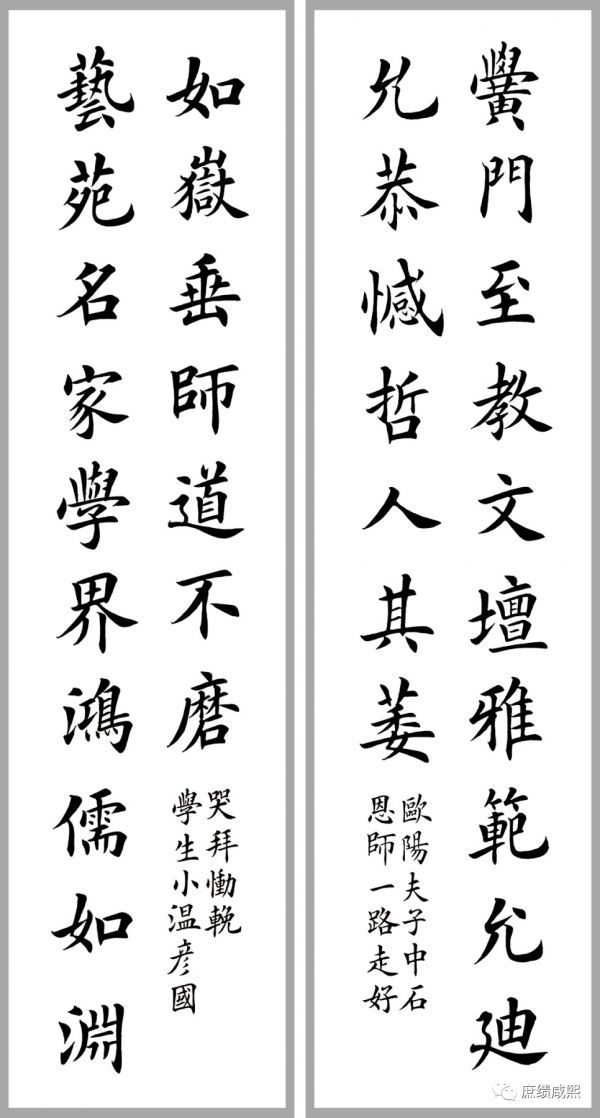 黌門至教文壇雅範允廸
允恭憾哲人其萎
歐陽夫子中石
恩師一路走好
藝苑名家學界鴻儒如淵
如嶽垂師道不磨
學生小温彦國
哭拜慟輓
庶绩咸熙